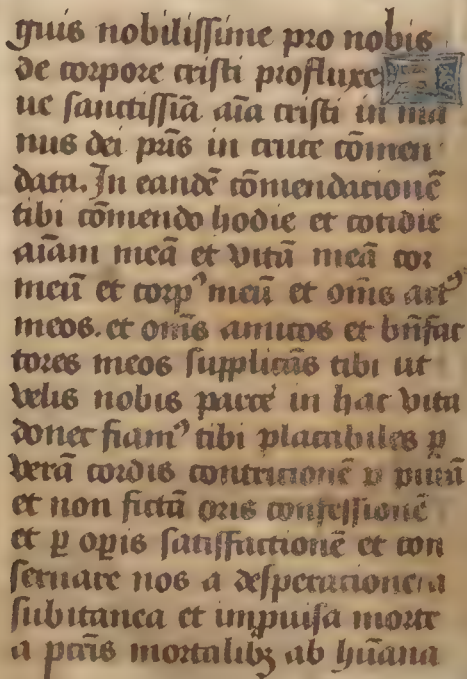 guis nobilissime pro nobis
de corpore cristi profluxe
ue sanctissiā aīa cristi in ma
nus dei pr̄is in cruce cōmen
data. In eandē cōmendacionē
tibi cōmendo hodie et cotidie
aīam meā et vitā meā cor
meū et corpꝰ meū et om̄s actꝰ
meos. et om̄s amicos et bn̄fac
tores meos supplicās tibi ut
velis nobis parcē in hac vita
donec fiamꝰ tibi placabiles ꝑ
verā cordis contricionē ꝑ purā
et non fictā oris confessionē
et ꝑ oꝑis satisfactionē et con
seruare nos a desperacione a
subitanea et impuisa morte
a pc̄tis mortalibꝫ ab hūana